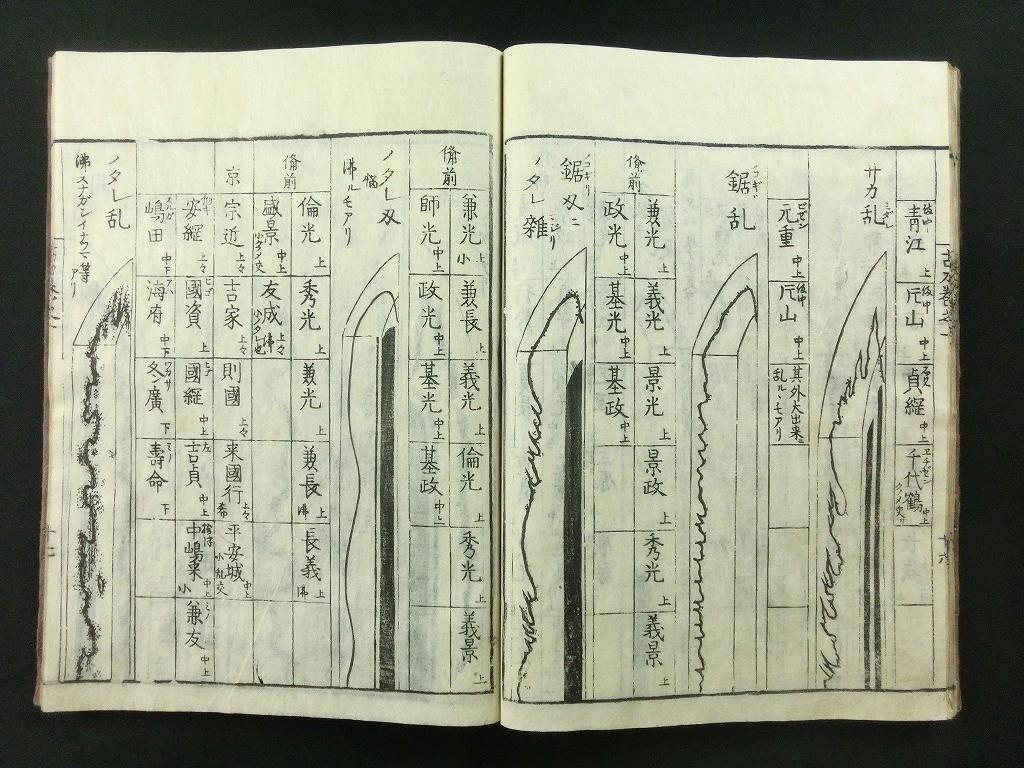 備中 青江 上
備中 片山 中上
貞縄 中上
ヱチゼン 千代鶴 中上
サカ乱
ビゼン 元重 中上
備中 片山 中上
其外大出来ニ
乱ルヽモアリ
鋸乱
備前
兼光 上
義光 上
景光 上
景政 上
秀光 上
義景 上
政光 中上
基光 中上
基政 中上
ノコギリ
鋸刄ニ
ノタレ雑
備前
兼光 上 小
兼長 上
義光 上
倫光 上
秀光 上
義景 上
師光 中上
政光 中上
基光 中上
基政 中上
ノタレ刄
沸ルモアリ
備前
倫光 上
秀光 上
兼光 上
兼長 上 沸
長義 上 沸
盛景 中上
友成 上々
京
宗近 上々
吉家 上々
則國 上々
来國行 上々 希
平安城 中上 小乱交
安縄 上々
國資 上
國縄 中上
左 吉貞 中上
中嶋来 中上 小
兼友 中上
嶋田 中下
海府 中下
冬廣 下
壽命 下
ノタレ乱